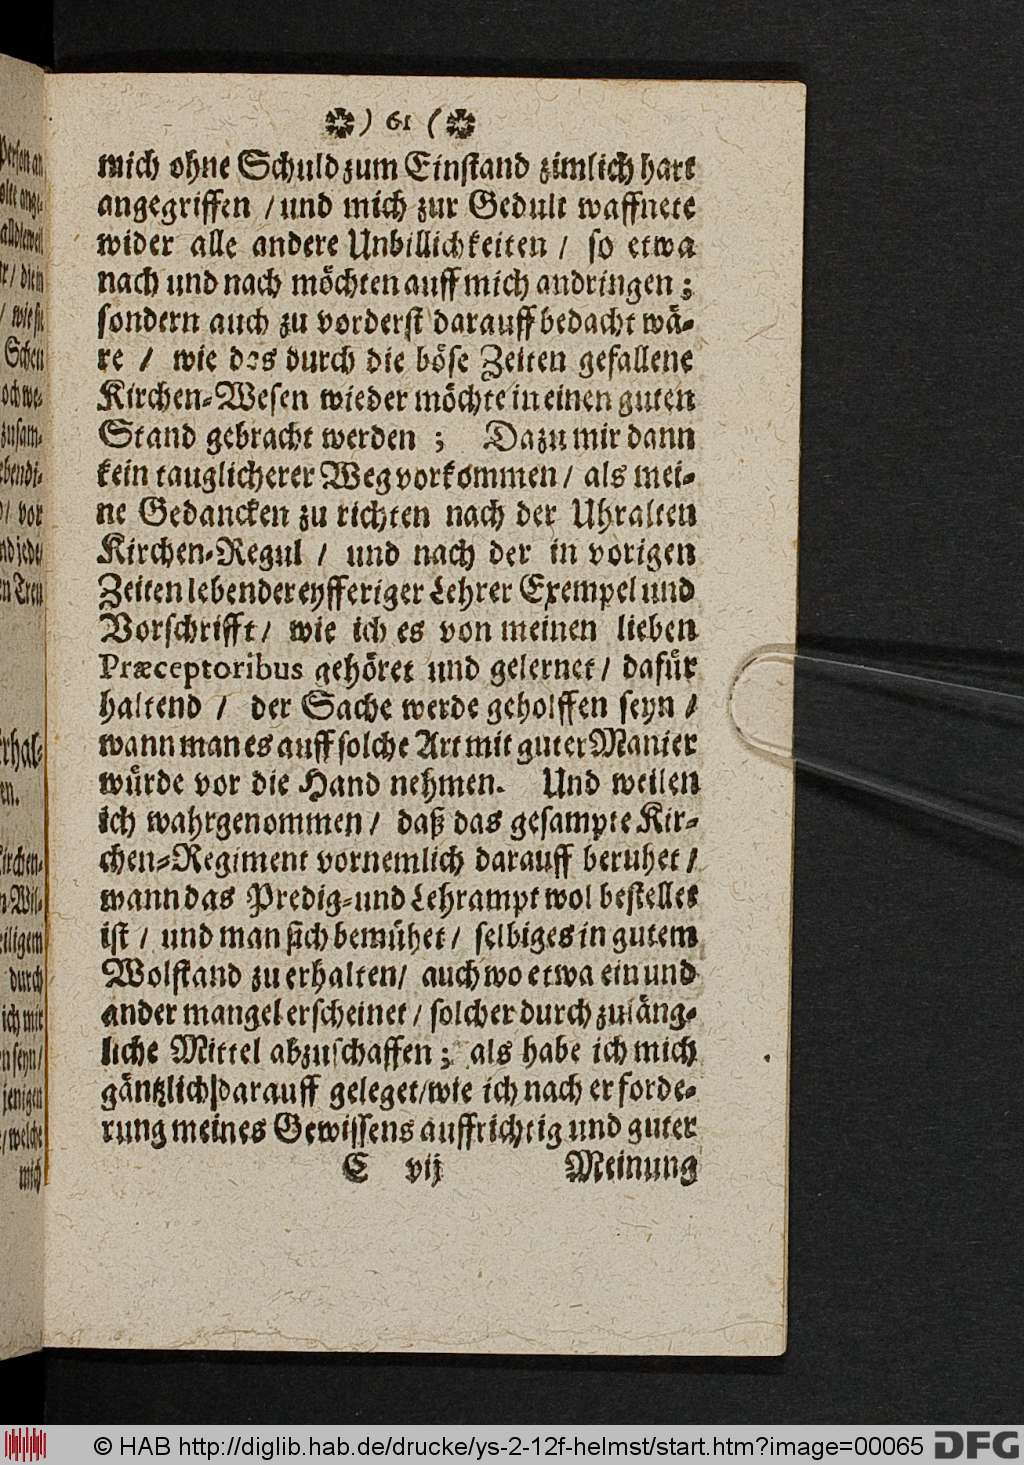 ) 61 (
mich ohne Schuld zum Einstand zimlich hart
angegriffen / und mich zur Gedult waffnete
wider alle andere Unbillichkeiten / so etwa
nach und nach möchten auff mich andringen ;
sondern auch zu vorderst darauff bedacht wä-
re / wie das durch die böse Zeiten gefallene
Kirchen-Wesen wieder möchte in einen guten
Stand gebracht werden ; Dazu mir dann
kein tauglicherer Weg vorkommen / als mei-
ne Gedancken zu richten nach der Uhralten
Kirchen-Regul / und nach der in vorigen
Zeiten lebender eyfferiger Lehrer Exempel und
Vorschrifft / wie ich es von meinen lieben
Præceptoribus gehöret und gelernet / dafür
haltend / der Sache werde geholffen seyn /
wann man es auff solche Art mit guter Manier
würde vor die Hand nehmen. Und weilen
ich wahrgenommen / daß das gesampte Kir-
chen-Regiment vornemlich darauff beruhet /
wann das Predig-und Lehrampt wol bestellet
ist / und man sich bemühet / selbiges in gutem
Wolstand zu erhalten / auch wo etwa ein und
ander mangel erscheinet / solcher durch zuläng-
liche Mittel abzuschaffen ; als habe ich mich
gäntzlich darauff geleget / wie ich nach erforde-
rung meines Gewissens auffrichtig und guter
C vij Meinung
© HAB http://diglib.hab.de/drucke/ys-2-12f-helmst/start.htm?image=00065 DFG